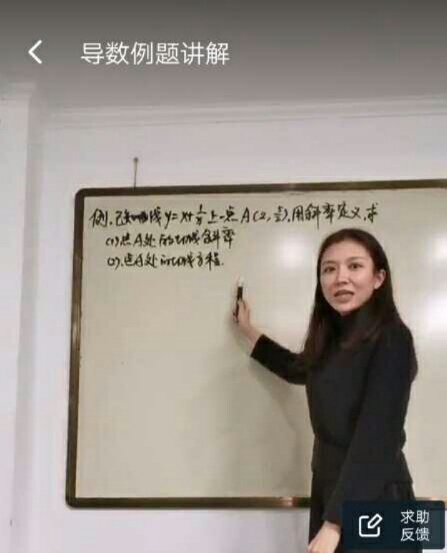 导数例题讲解
例.已知曲线y=x+1/x上一点A(2,5/2),用斜率定义,求
(1)点A处的切线斜率
(2).点A处的切线方程.
求助
反馈